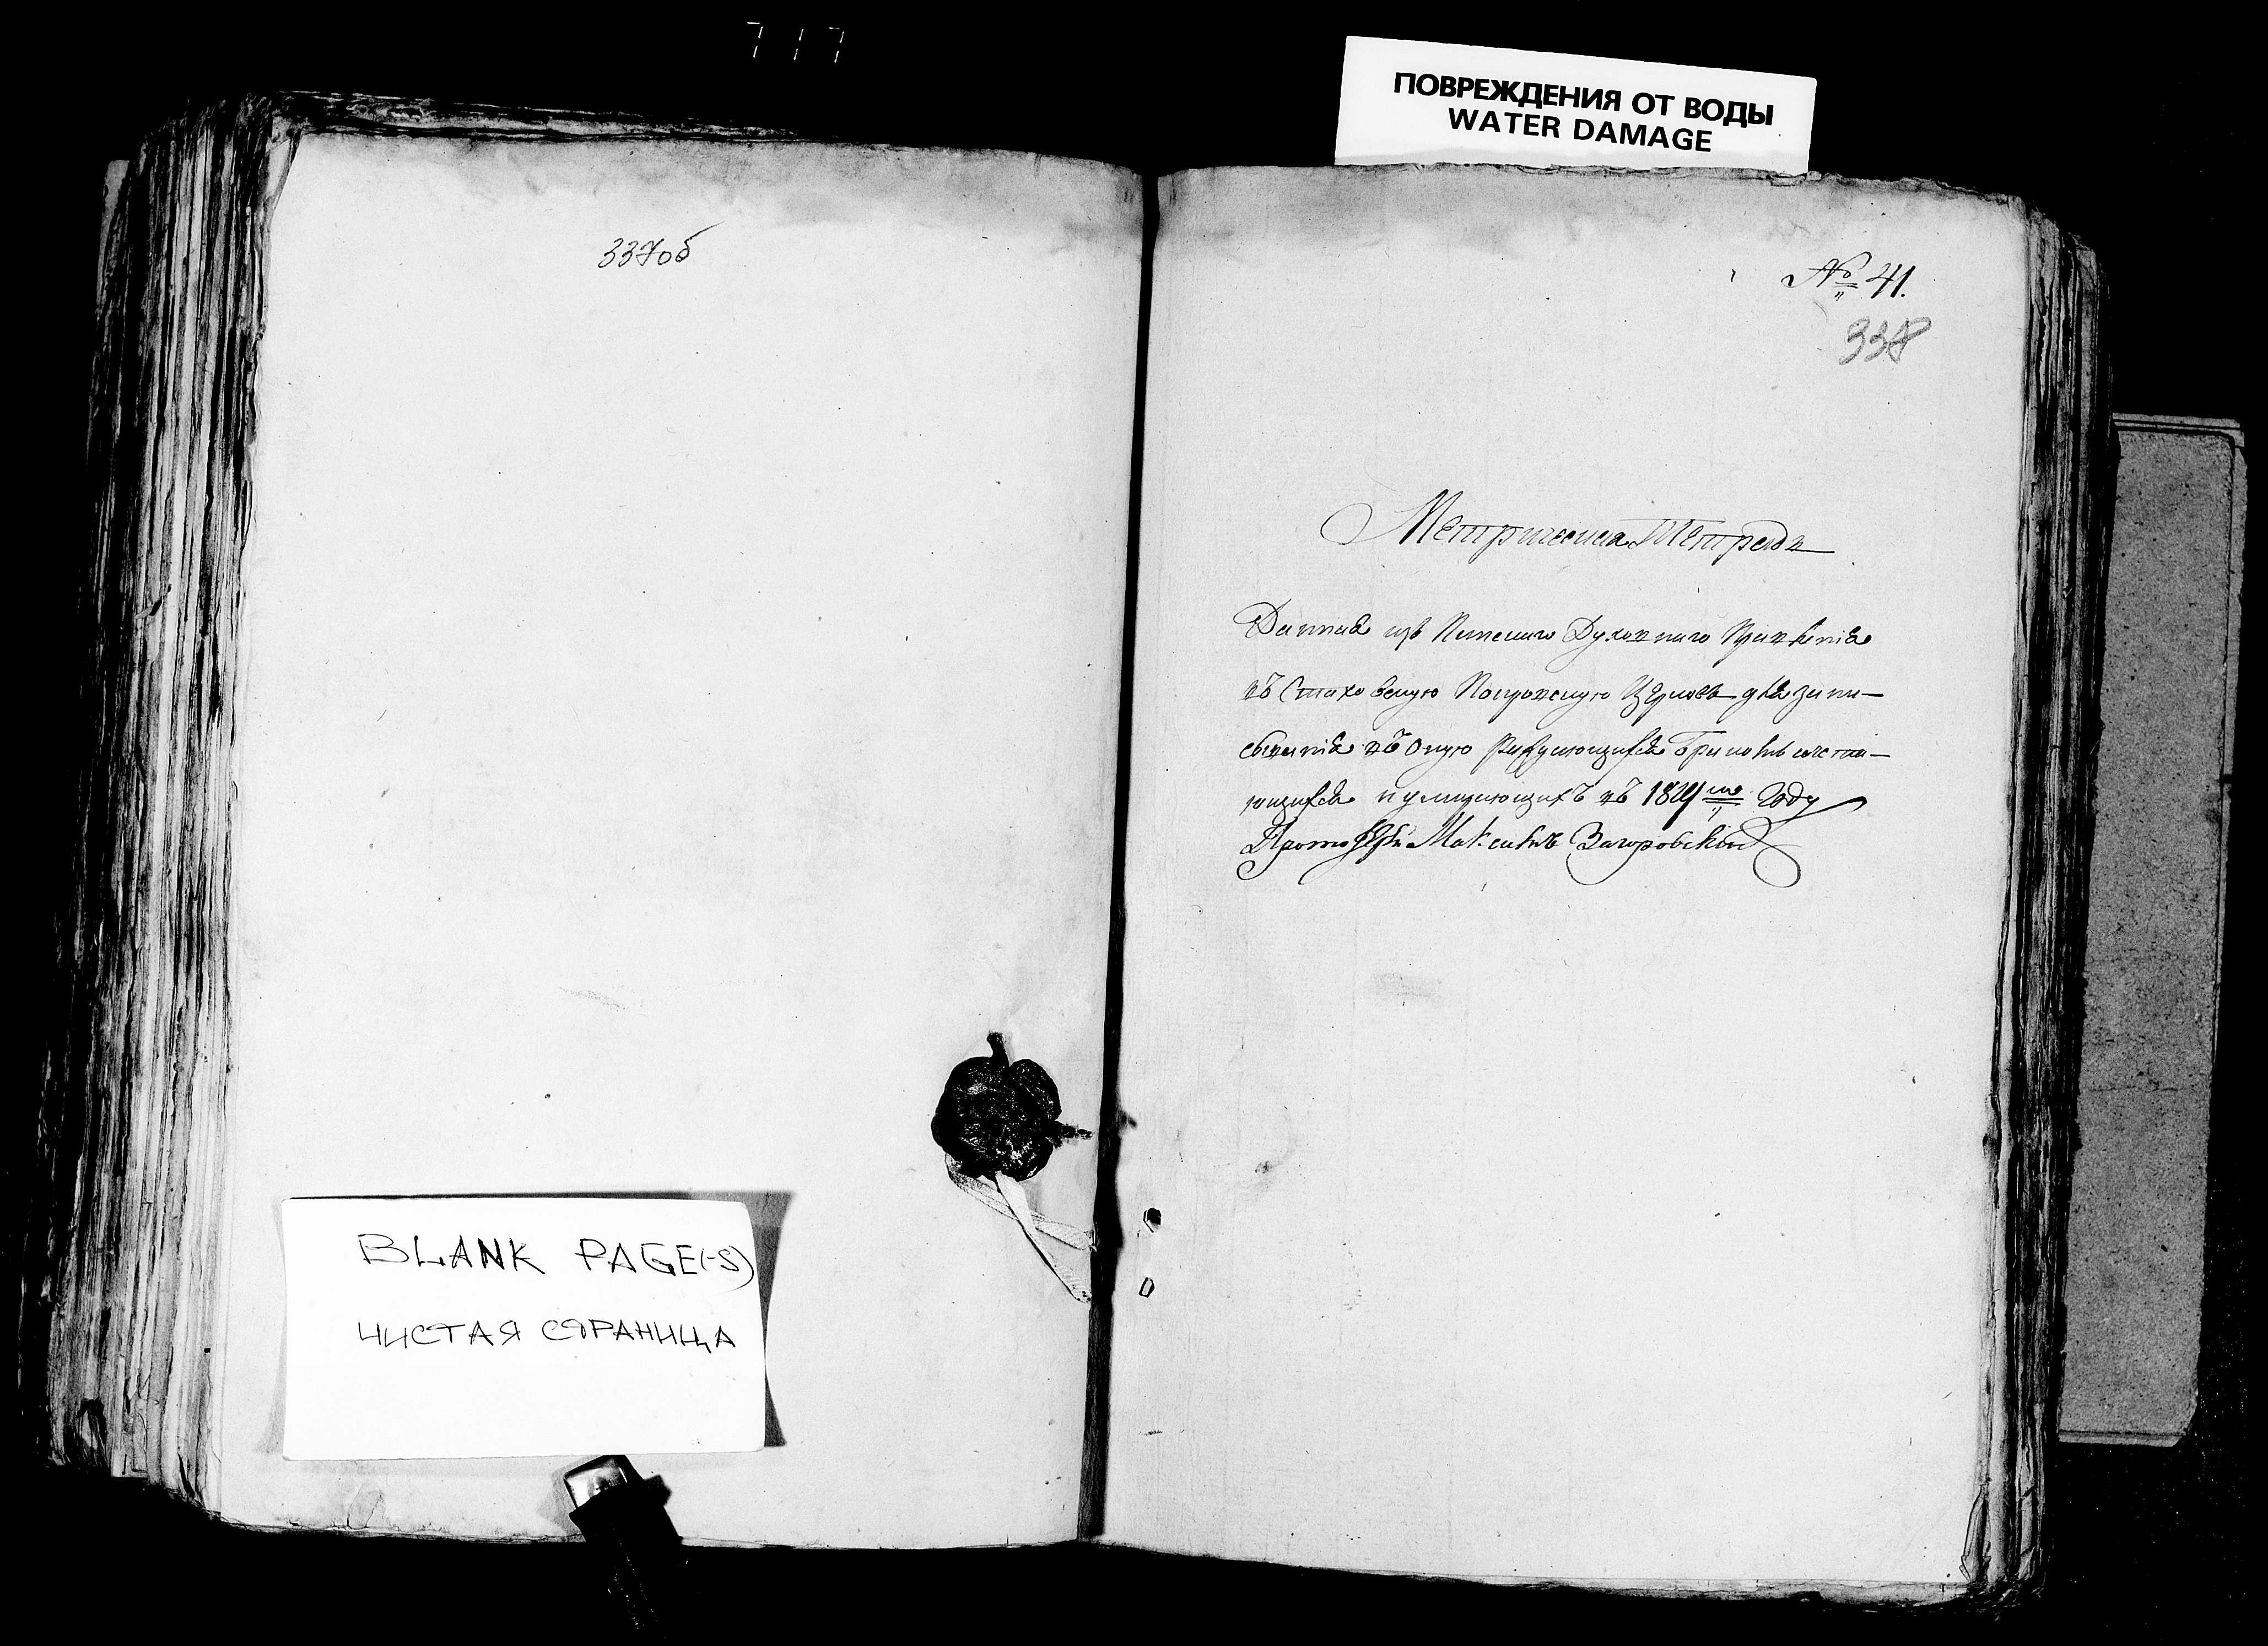 717
ПОВРЕЖДЕНИЯ ОТ ВОДЫ
WATER DAMAGE
337об
№ 41.
338
Метрическая Тетрадь
Данная изъ Пинскаго Духовнаго Правленія
въ Стаховскую Покровскую Церковь для запи-
сыванія въ оную раждающихся бракомъ сочета-
ющихся и умирающихъ въ 1824мъ Году
Протоіерей Максимъ Загоровскій
BLANK PAGE(-S)
ЧИСТАЯ СТРАНИЦА